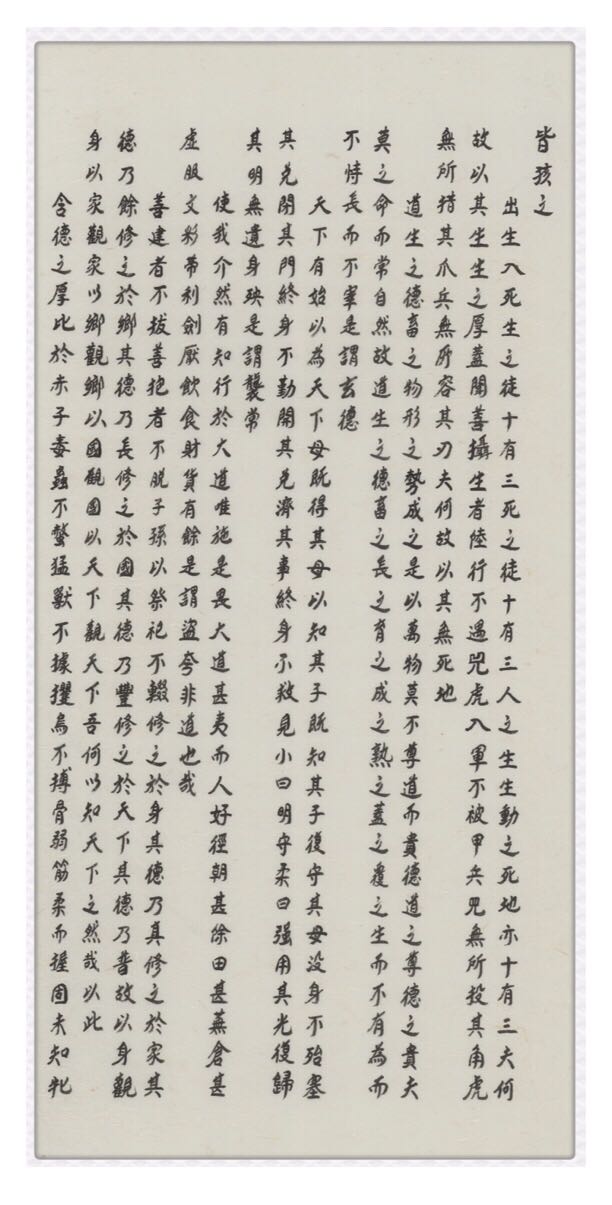 皆孩之
出生入死生之徒十有三死之徒十有三人之生生動之死地亦十有三夫何
故以其生生之厚蓋聞善攝生者陸行不遇兕虎入軍不被甲兵兕無所投其角虎
無所措其爪兵無所容其刃夫何故以其無死地
道生之德畜之物形之勢成之是以萬物莫不尊道而貴德道之尊德之貴夫
莫之命而常自然故道生之德畜之長之育之成之熟之蓋之覆之生而不有為而
不恃長而不宰是謂玄德
天下有始以為天下母既得其母以知其子既知其子復守其母没身不殆塞
其兌閉其門終身不勤開其兌濟其事終身不救見小曰明守柔曰强用其光復歸
其明無遺身殃是謂襲常
使我介然有知行於大道唯施是畏大道甚夷而人好徑朝甚除田甚蕪倉甚
虛服文彩帶利劍厭飲食財貨有餘是謂盜夸非道也哉
善建者不拔善抱者不脱子孫以祭祀不輟修之於身其德乃真修之於家其
德乃餘修之於鄉其德乃長修之於國其德乃豐修之於天下其德乃普故以身觀
身以家觀家以鄉觀鄉以國觀國以天下觀天下吾何以知天下之然哉以此
含德之厚比於赤子毒蟲不螫猛獸不據攫鳥不搏骨弱筋柔而握固未知牝